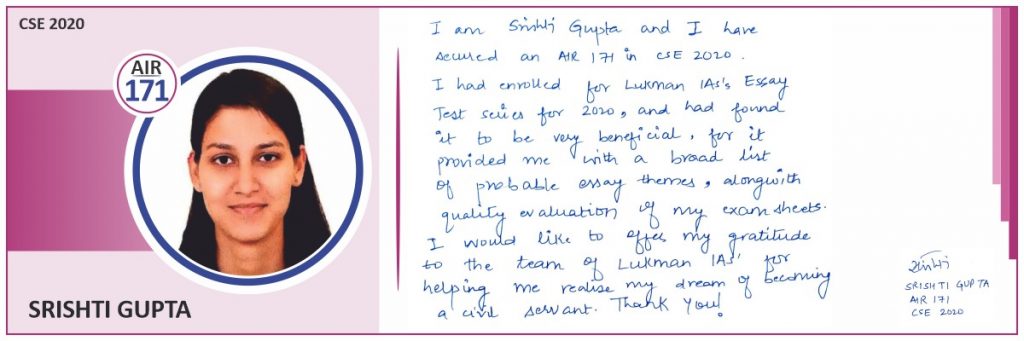 CSE 2020
AIR
171
SRISHTI GUPTA
I am Srishti Gupta and I have
secured an AIR 171 in CSE 2020.
I had enrolled for Lukman IAS's Essay
Test series for 2020, and had found
it to be very beneficial, for it
provided me with a broad list
of probable essay themes, alongwith
quality evaluation of my exam sheets.
I would like to offer my gratitude
to the team of Lukman IAS' for
helping me realise my dream of becoming
a civil servant. Thank You!
सृष्टि
SRISHTI GUPTA
AIR 171
CSE 2020